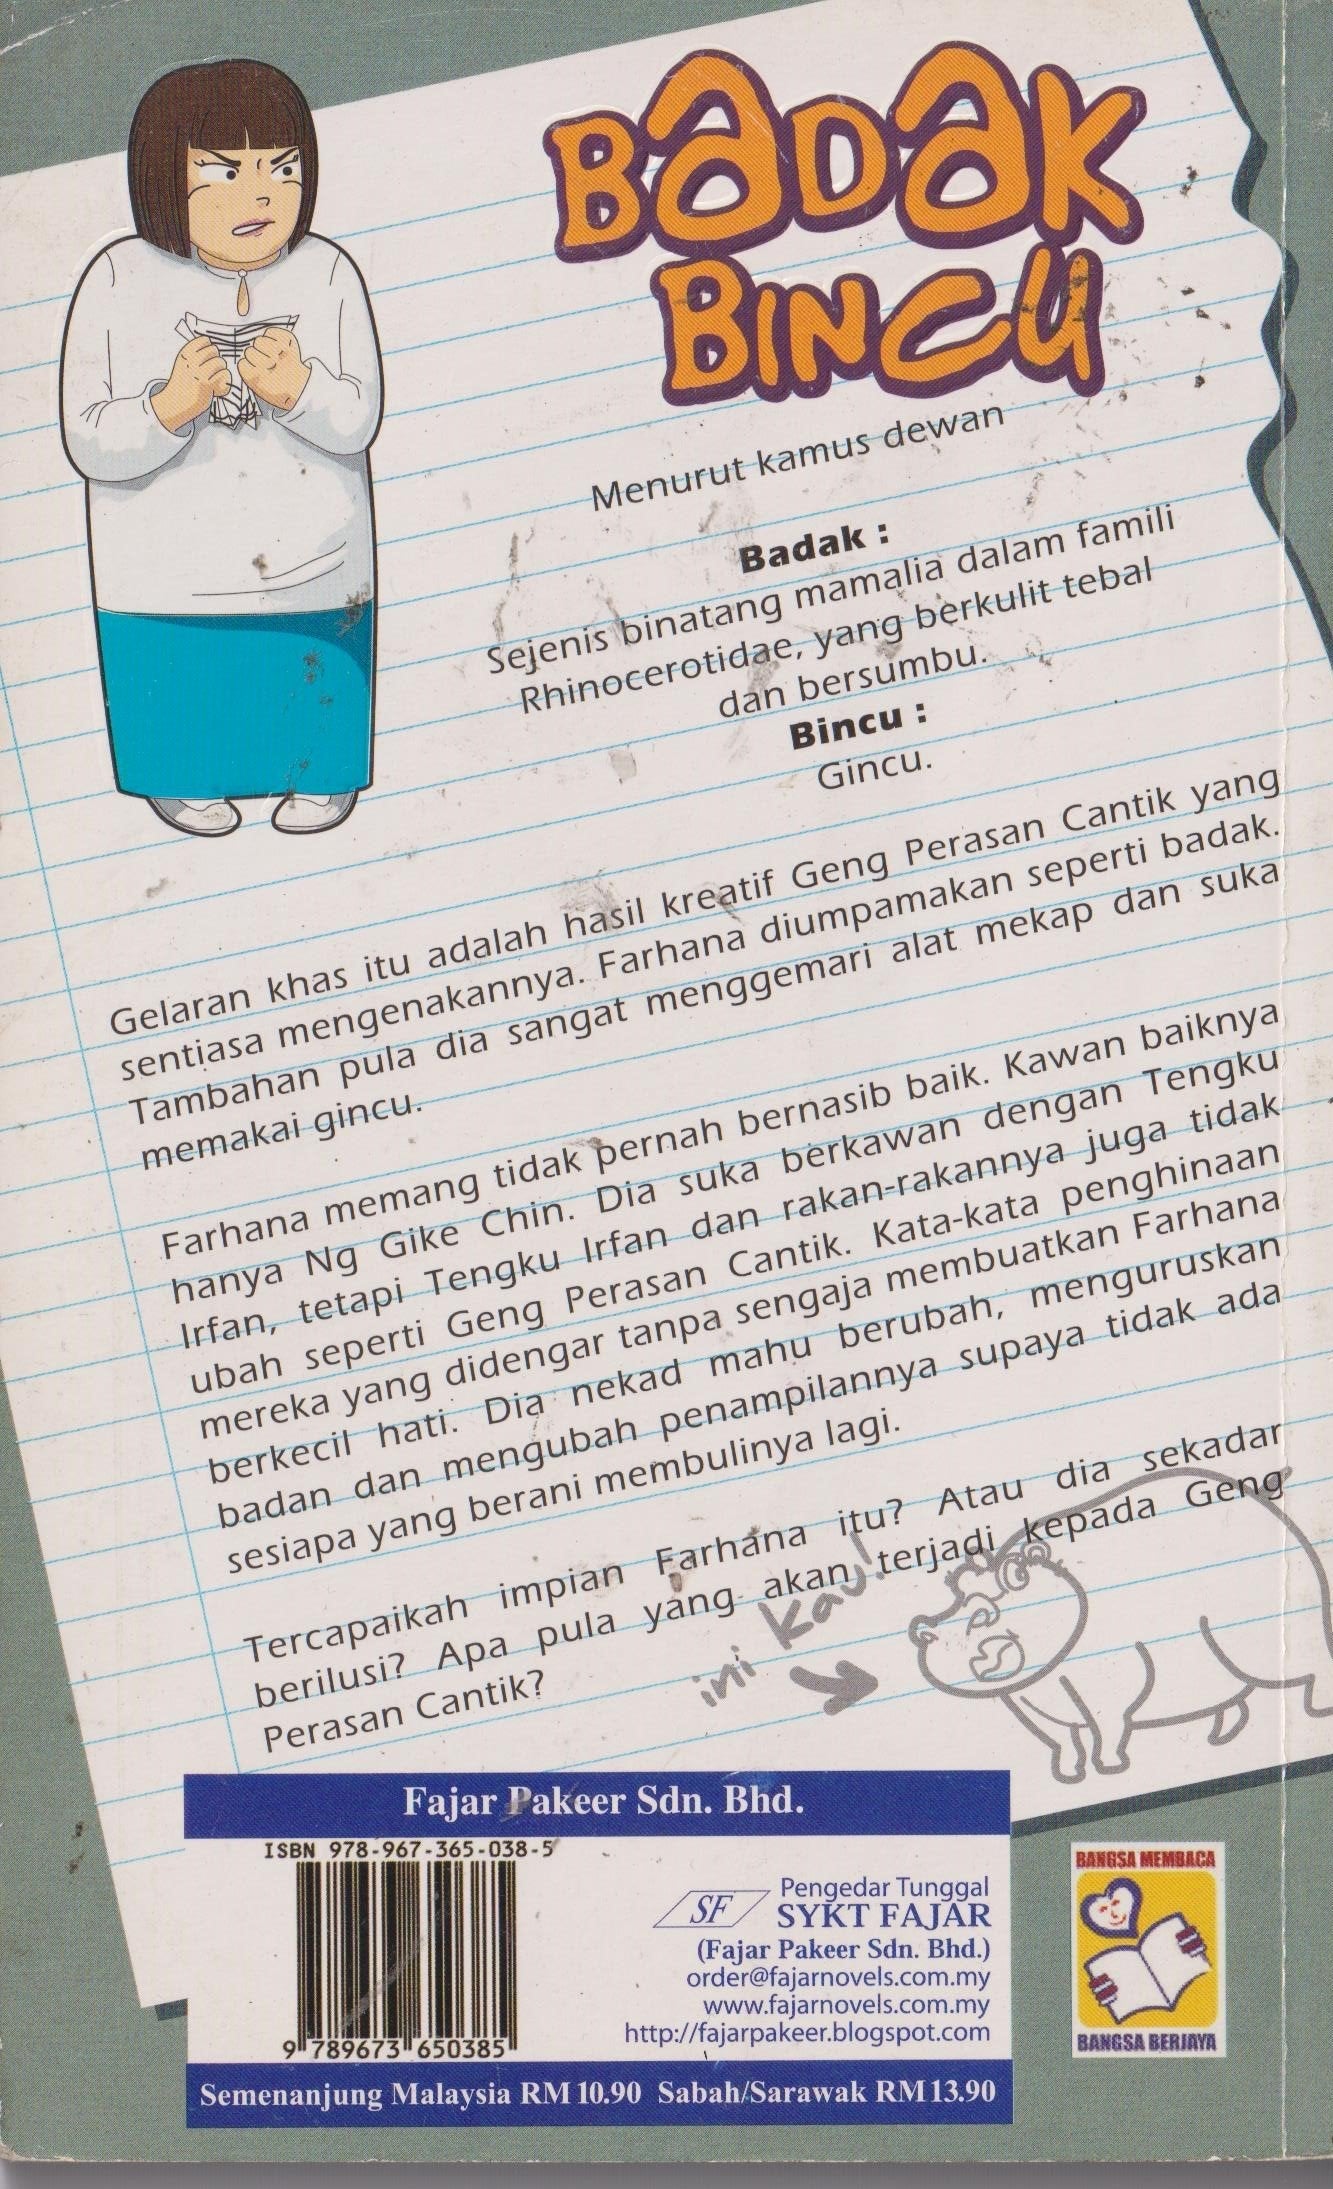 BADAK
BINCU
Menurut kamus dewan
Badak :
Sejenis binatang mamalia dalam famili
Rhinocerotidae, yang berkulit tebal
dan bersumbu.
Bincu :
Gincu.
Gelaran khas itu adalah hasil kreatif Geng Perasan Cantik yang
sentiasa mengenakannya. Farhana diumpamakan seperti badak.
Tambahan pula dia sangat menggemari alat mekap dan suka
memakai gincu.
Farhana memang tidak pernah bernasib baik. Kawan baiknya
hanya Ng Gike Chin. Dia suka berkawan dengan Tengku
Irfan, tetapi Tengku Irfan dan rakan-rakannya juga tidak
ubah seperti Geng Perasan Cantik. Kata-kata penghinaan
mereka yang didengar tanpa sengaja membuatkan Farhana
berkecil hati. Dia nekad mahu berubah, menguruskan
badan dan mengubah penampilannya supaya tidak ada
sesiapa yang berani membulinya lagi.
Tercapaikah impian Farhana itu? Atau dia sekadar
berilusi? Apa pula yang akan terjadi kepada Geng
Perasan Cantik?
ini kau!
Fajar Pakeer Sdn. Bhd.
ISBN 978-967-365-038-5
9 789673 650385
SF
Pengedar Tunggal
SYKT FAJAR
(Fajar Pakeer Sdn. Bhd.)
order@fajarnovels.com.my
www.fajarnovels.com.my
http://fajarpakeer.blogspot.com
Semenanjung Malaysia RM 10.90 Sabah/Sarawak RM 13.90
BANGSA MEMBACA
BANGSA BERJAYA